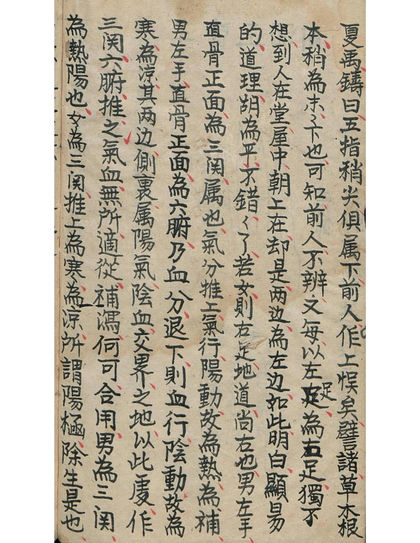 夏禹鑄曰五指稍尖俱属下前人作上悮矣譬諸草木根
本稍為末卞也可知前人不辨又每以左足為右足獨不
想到人在堂屋中朝上在却是两边為左边如此明白顯易
的道理朔為平才錯〻了若女則右足地道尚右也男左手
直骨正面為三関属也氣分推上氣行陽動故為熱為補
男左手直骨正面為六腑乃血分退下則血行陰動故為
寒為凉其两边側裏属陽氣陰血交界之地以此處作
三関六腑推之氣血無所適從補瀉何可合用男為三関
為熱陽也女為三関推上為寒為凉所謂陽極陰生是也